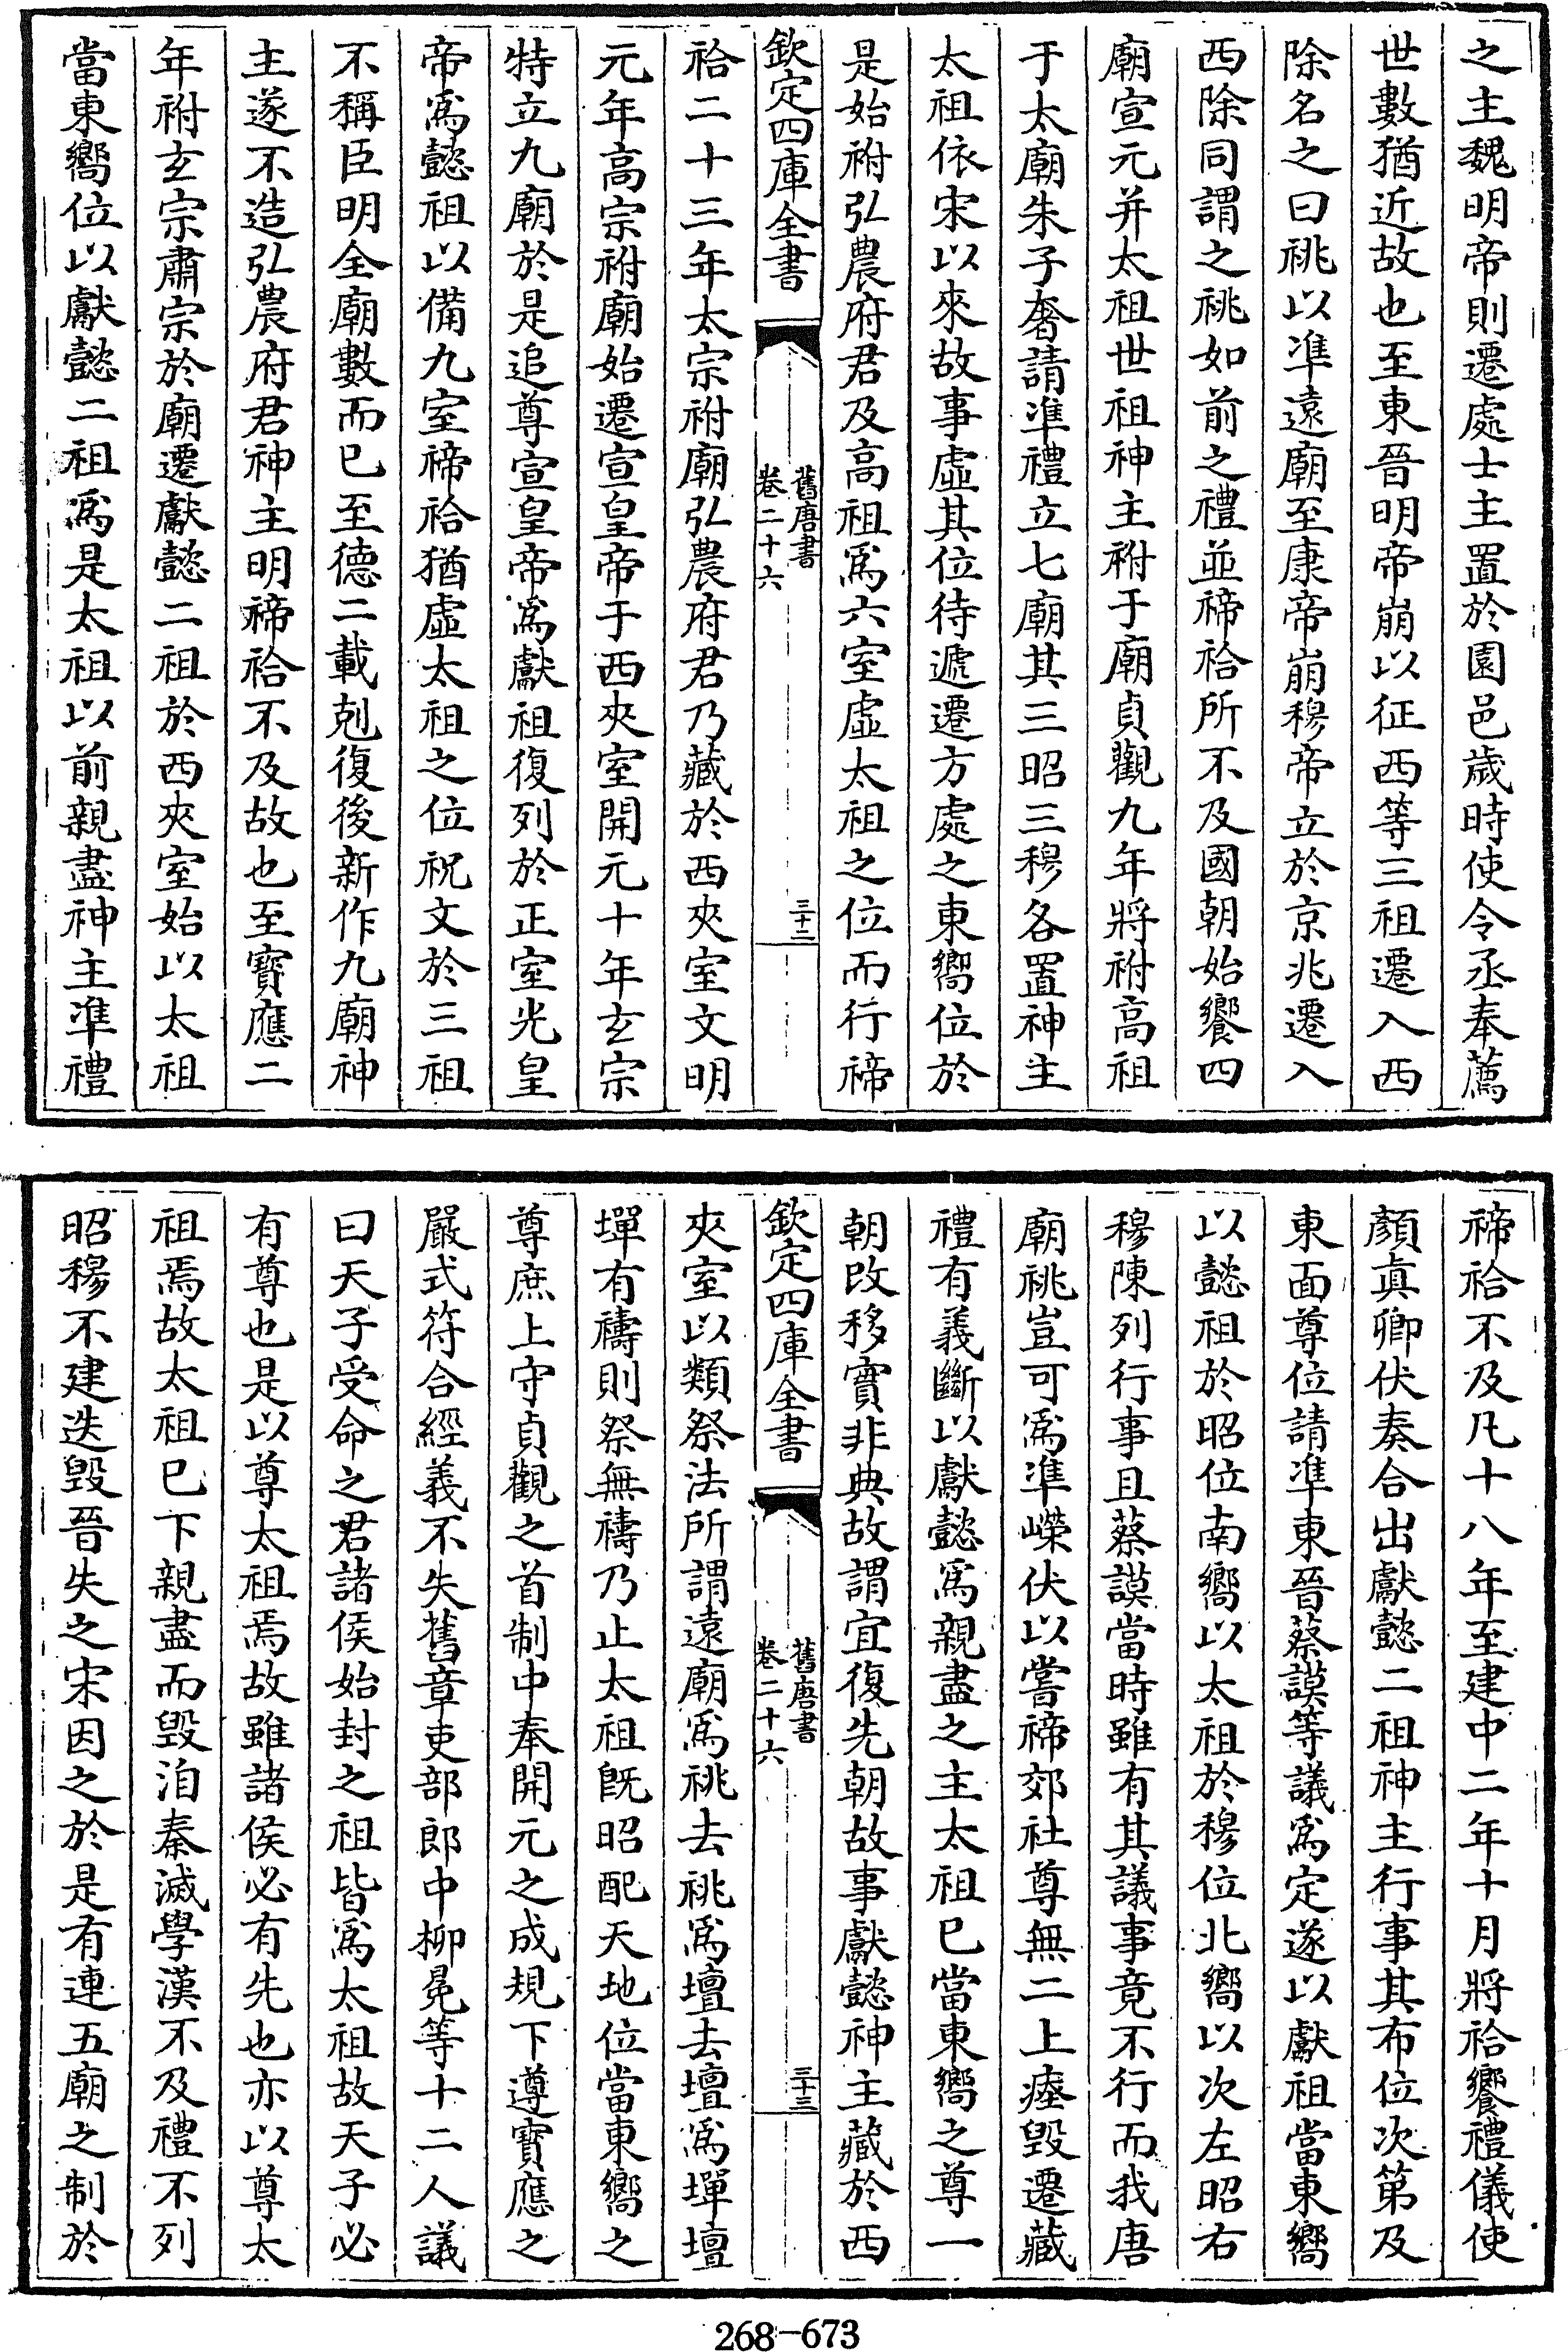 之主魏明帝則遷處士主置於園邑歲時使令丞奉薦
世數猶近故也至東晉明帝崩以征西等三祖遷入西
除名之曰祧以準遠廟至康帝崩穆帝立於京兆遷入
西除同謂之祧如前之禮並禘祫所不及國朝始饗四
廟宣元并太祖世祖神主祔于廟貞觀九年將祔高祖
于太廟朱子奢請準禮立七廟其三昭三穆各置神主
太祖依宋以來故事虛其位待遞遷方處之東嚮位於
是始祔弘農府君及高祖為六室虛太祖之位而行禘
欽定四庫全書
舊唐書
卷二十六
三十二
祫二十三年太宗祔廟弘農府君乃藏於西夾室文明
元年高宗祔廟始遷宣皇帝于西夾室開元十年玄宗
特立九廟於是追尊宣皇帝為獻祖復列於正室光皇
帝為懿祖以備九室禘祫猶虛太祖之位祝文於三祖
不稱臣明全廟數而已至德二載剋復後新作九廟神
主遂不造弘農府君神主明禘祫不及故也至寶應二
年祔玄宗肅宗於廟遷獻懿二祖於西夾室始以太祖
當東嚮位以獻懿二祖為是太祖以前親盡神主準禮
禘祫不及凡十八年至建中二年十月將祫饗禮儀使
顏真卿伏奏合出獻懿二祖神主行事其布位次第及
東面尊位請準東晉蔡謨等議為定遂以獻祖當東嚮
以懿祖於昭位南嚮以太祖於穆位北嚮以次左昭右
穆陳列行事且蔡謨當時雖有其議事竟不行而我唐
廟祧豈可為準嶸伏以嘗禘郊社尊無二上瘞毀遷藏
禮有義斷以獻懿為親盡之主太祖已當東嚮之尊一
朝改移實非典故謂宜復先朝故事獻懿神主藏於西
欽定四庫全書
舊唐書
卷二十六
三十三
夾室以類祭法所謂遠廟為祧去祧為壇去壇為墠壇
墠有禱則祭無禱乃止太祖既昭配天地位當東嚮之
尊庶上守貞觀之首制中奉開元之成規下遵寶應之
嚴式符合經義不失舊章吏部郎中柳冕等十二人議
曰天子受命之君諸侯始封之祖皆為太祖故天子必
有尊也是以尊太祖焉故雖諸侯必有先也亦以尊太
祖焉故太祖已下親盡而毀洎秦滅學漢不及禮不列
昭穆不建迭毀晉失之宋因之於是有連五廟之制於
268-673